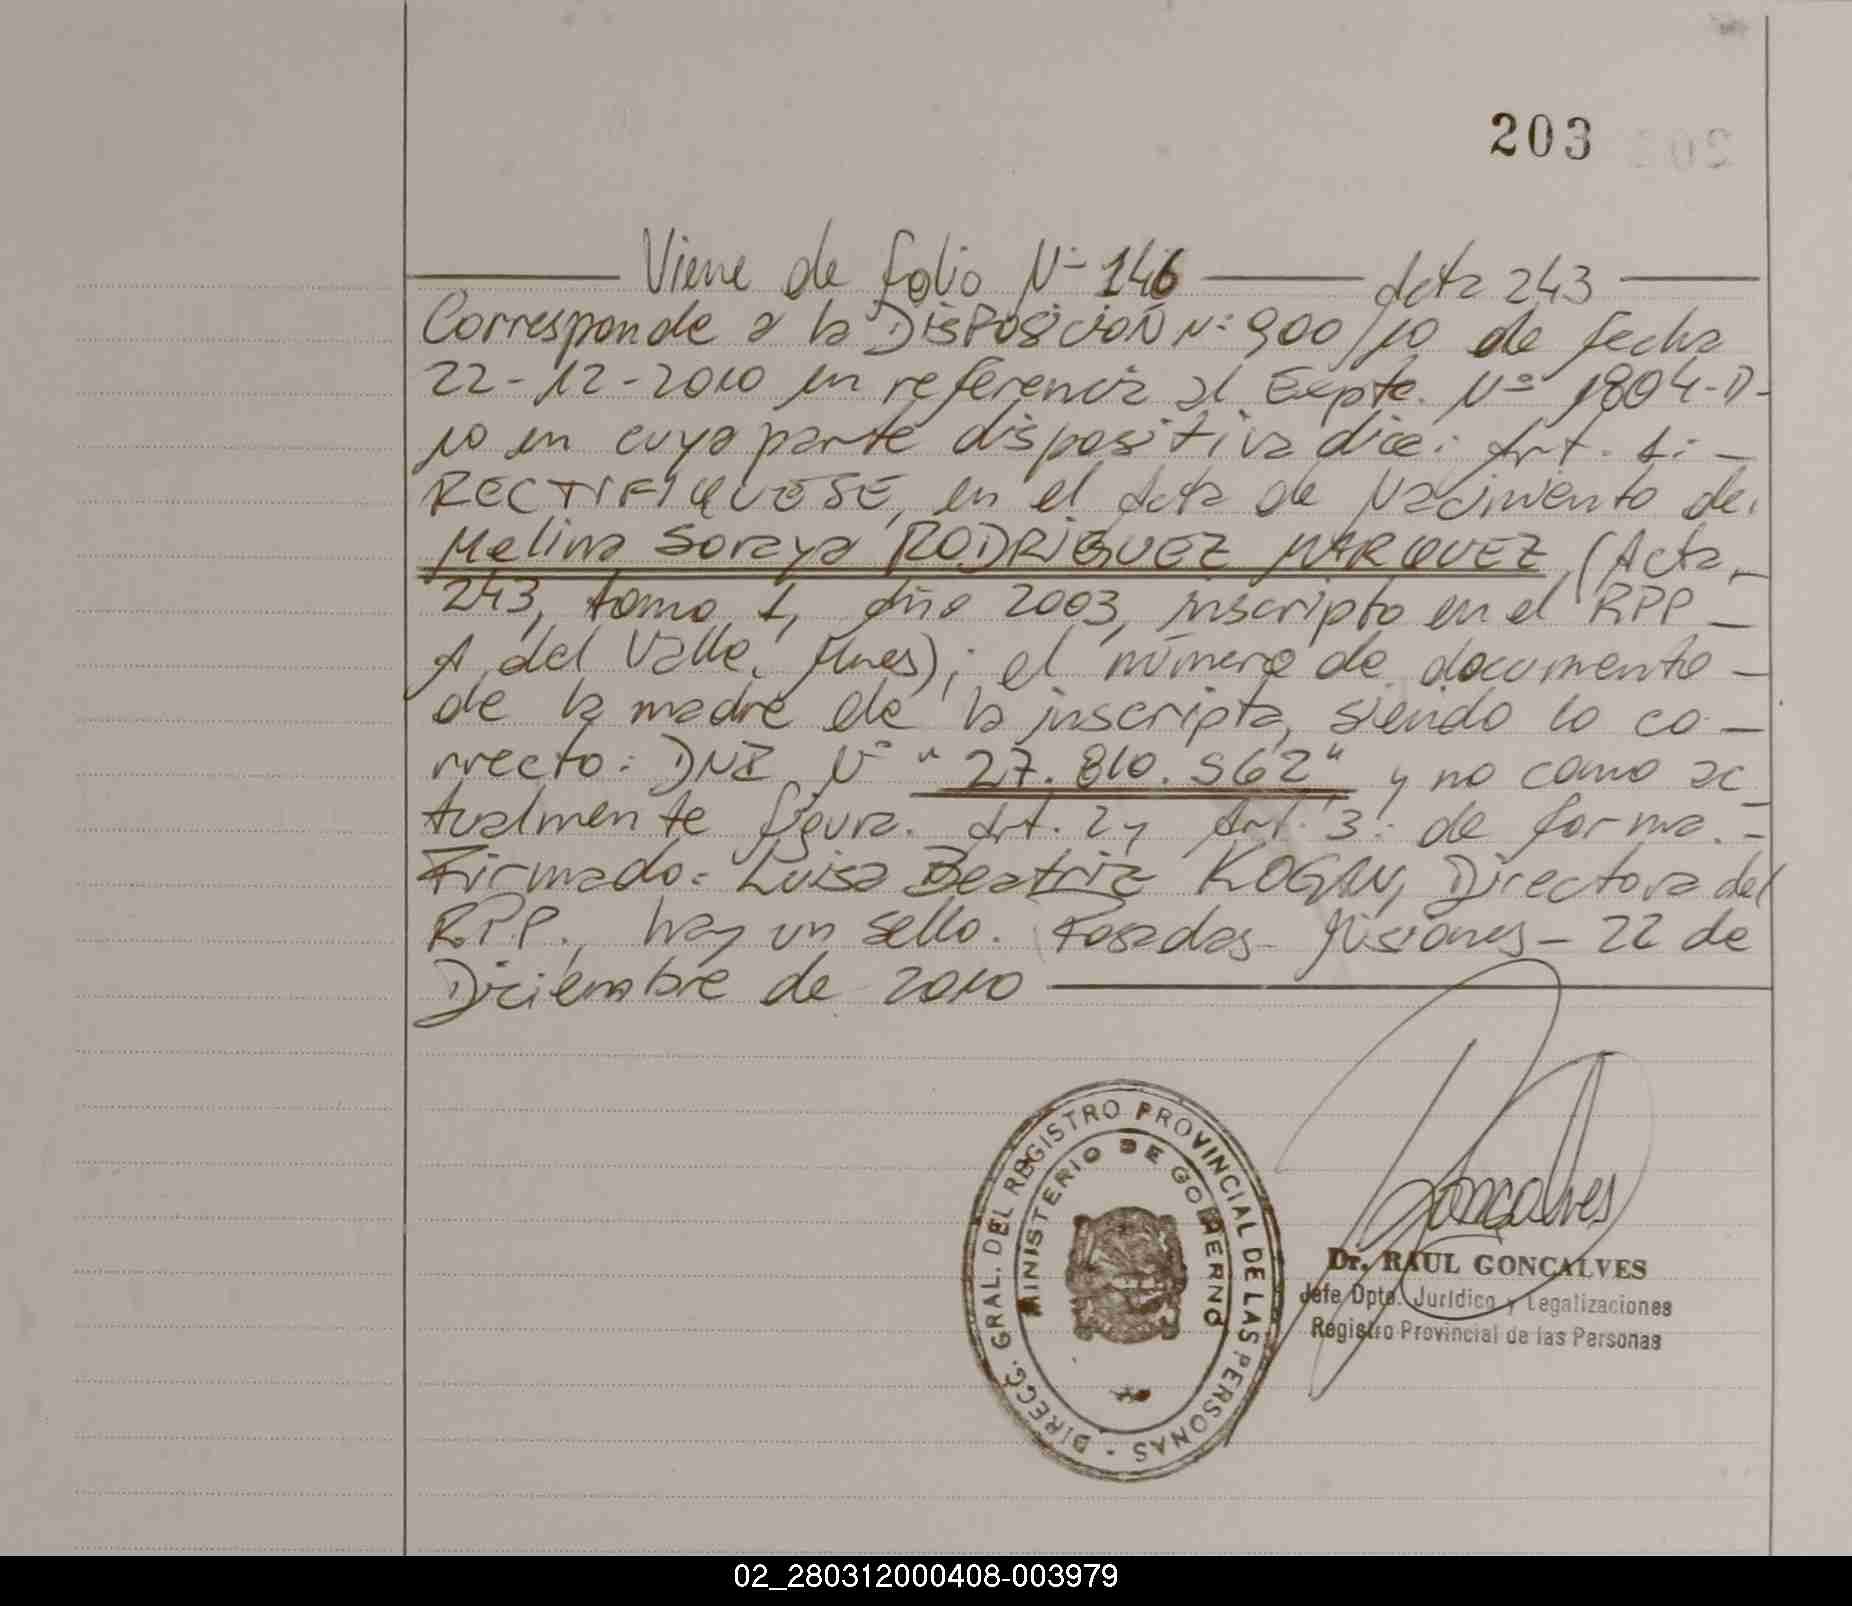 203
Viene de folio Nº 146 Acta 243
Corresponde a la DisPosicioN Nº 900/10 de fecha
22-12-2010 en referencia al Expte. Nº 1804-D-
10 en cuya parte dispositiva dice: Art. 1: -
RECTIFIQUESE, en el Acta de Nacimiento de:
Melina Soraya RODRIGUEZ MARQUEZ, (Acta
243, tomo 1, año 2003, inscripto en el RPP -
A. del Valle, Mnes); el número de documento -
de la madre de la inscripta, siendo lo co-
rrecto: DNI Nº "27.810.562" y no como ac_
tualmente figura. Art. 2 y Art. 3: de forma. -
Firmado: Luisa Beatriz KOGAN, Directora del
R.P.P., hay un sello. Posadas - Misiones - 22 de
Diciembre de 2010
Goncalves
DIRECC. GRAL. DEL REGISTRO PROVINCIAL DE LAS PERSONAS -
MINISTERIO DE GOBIERNO
Dr. RAUL GONCALVES
Jefe Dpto. Jurídico y Legalizaciones
Registro Provincial de las Personas
02_280312000408-003979